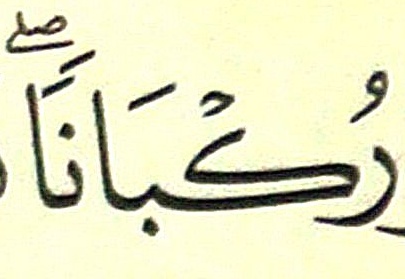 رُكْبَانًا ۖ